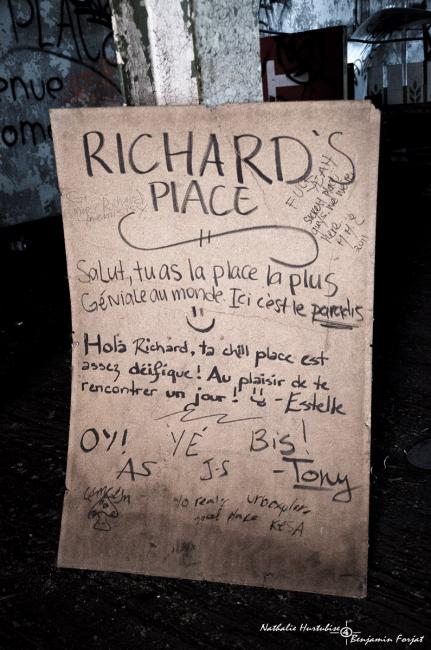 RICHARD'S
PlACE
FUCK YEAH
Secret place
guys, we were
here
2011
Salut, tu as la place la plus
Géniale au monde. Ici c'est le paradis
Holà Richard, ta chill place est
assez déifique! Au plaisir de te
rencontrer un jour! - Estelle
OY! YÉ Bis!
AS J-S - Tony
Yo really urbexplore
good place KESA
Nathalie Hurtubise
Benjamin Forjat